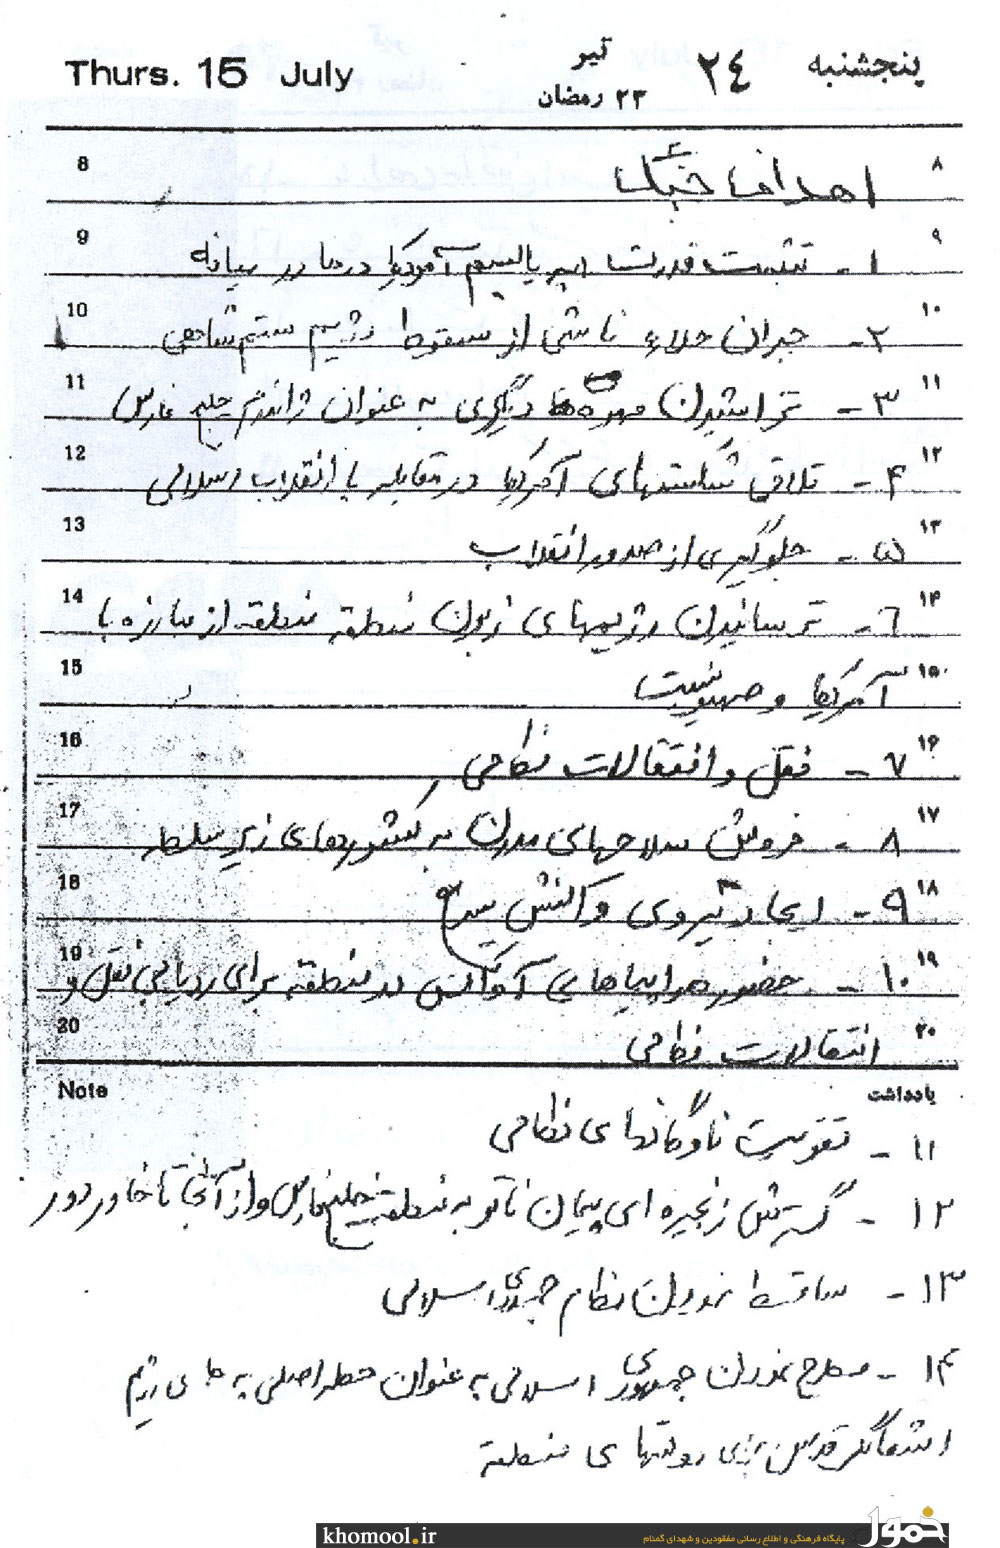 Thurs. 15 July تیر ۲۴ پنجشنبه
۲۳ رمضان
8 اهداف جنگ ۸
9 ۱- تثبیت قدرت امپریالیسم آمریکا در خاورمیانه ۹
10 ۲- جبران خلاء ناشی از سقوط رژیم ستم‌شاهی ۱۰
11 ۳- تراشیدن مهره‌های دیگری به عنوان ژاندارم خلیج فارس ۱۱
12 ۴- تلافی شکستهای آمریکا در مقابله با انقلاب اسلامی ۱۲
13 ۵- جلوگیری از صدور انقلاب ۱۳
14 ۶- ترسانیدن رژیمهای زبون منطقه منطقه از مبارزه با ۱۴
15 آمریکا و صهیونیست ۱۵
16 ۷- نقل و انتقالات نظامی ۱۶
17 ۸- فروش سلاحهای مدرن به کشورهای زیر سلطه ۱۷
18 ۹- ایجاد نیروی واکنش سریع ۱۸
19 ۱۰- حضور هواپیماهایی آواکس در منطقه برای ردیابی نقل و ۱۹
20 انتقالات نظامی ۲۰
Note یادداشت
۱۱- تقویت ناوگانهای نظامی
۱۲- گسترش زنجیره‌ای پیمان ناتو به منطقه خلیج فارس و از آنجا تا خاور دور
۱۳- ساقط نمودن نظام جمهوری اسلامی
۱۴- مطرح نمودن جمهوری اسلامی به عنوان خطر اصلی به جای رژیم
اشغالگر قدس برای دولتهای منطقه
khomool.ir پایگاه فرهنگی و اطلاع رسانی مفقودین و شهدای گمنام خمول